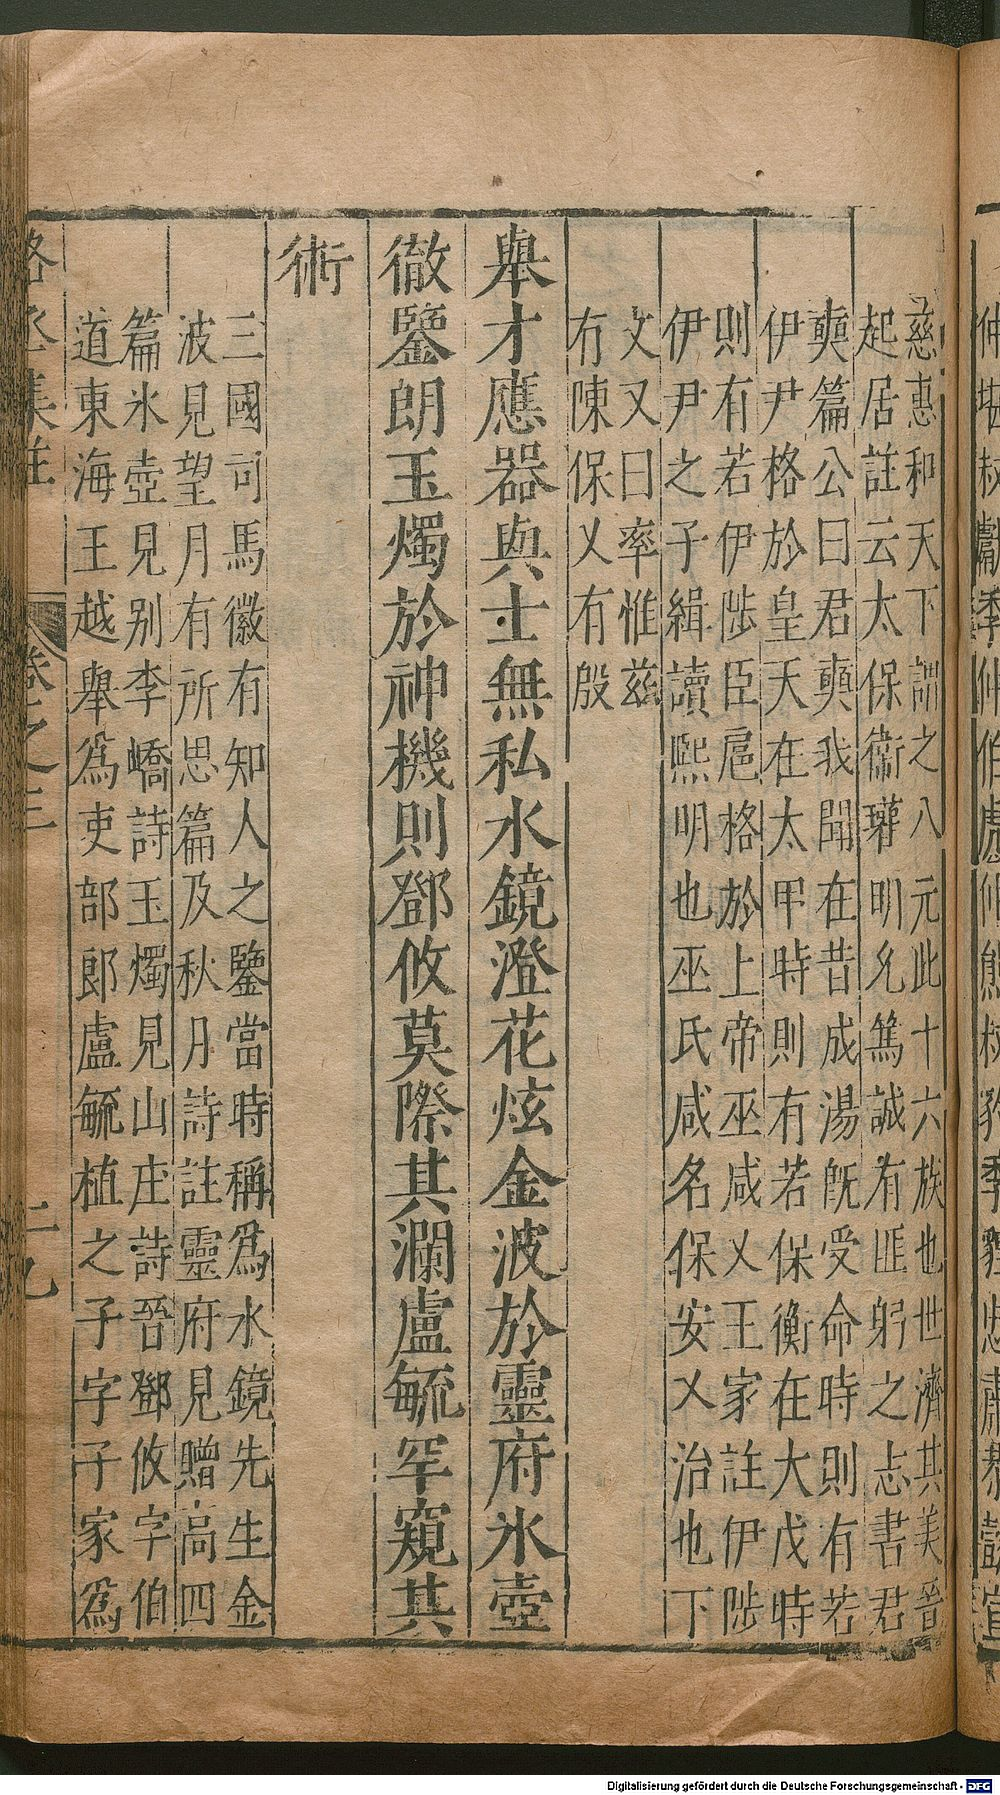 慈惠和天下謂之八元此十六族也世濟其美晉
起居註云太保衛瓘明允篤誠有匪躬之志書君
奭篇公曰君奭我聞在昔成湯旣受命時則有若
伊尹格於皇天在太甲時則有若保衡在大戊時
則有若伊陟臣扈格於上帝巫咸乂王家註伊陟
伊尹之子緝讀熙明也巫氏咸名保安乂治也下
文又曰率惟茲
有陳保乂有殷
舉才應器與士無私水鏡澄花炫金波於靈府氷壺
徹鑒朗玉燭於神機則鄧攸莫際其瀾盧毓罕窺其
術
三國司馬徽有知人之鑒當時稱爲水鏡先生金
波見望月有所思篇及秋月詩註靈府見贈高四
篇氷壺見別李嶠詩玉燭見山庄詩晉鄧攸字伯
道東海王越舉爲吏部郎盧毓植之子字子家爲
集註 卷之三 二九
Digitalisierung gefördert durch die Deutsche Forschungsgemeinschaft - DFG